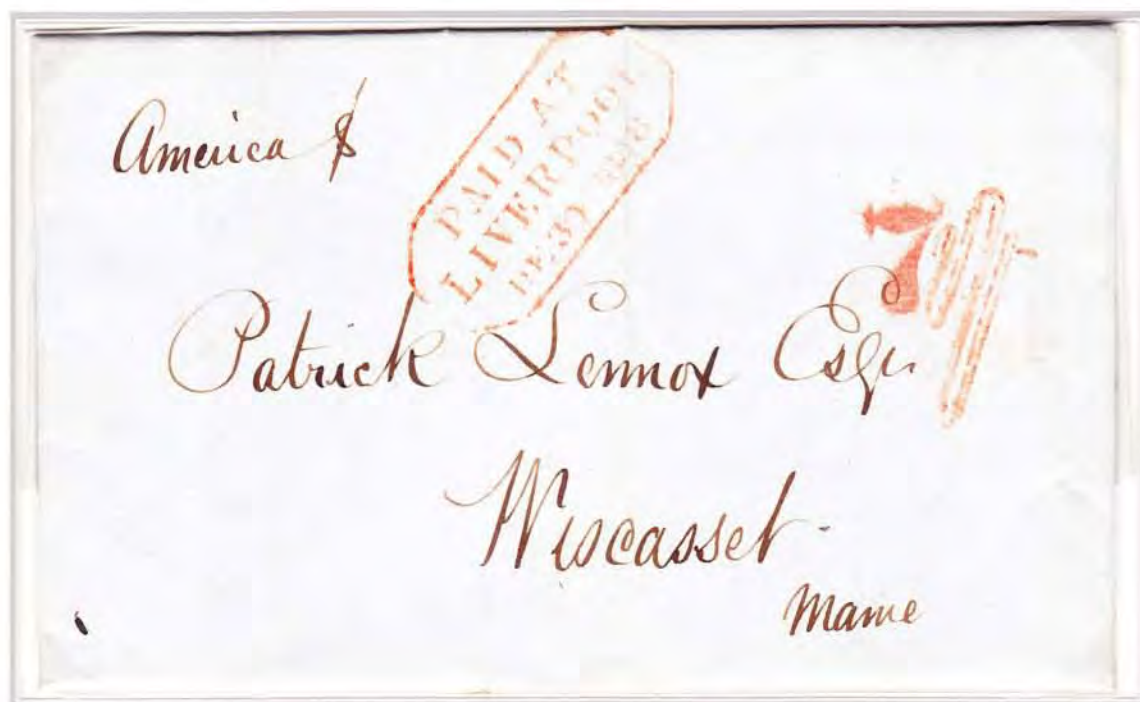 America
PAID AT
LIVERPOOL
DE 30
7
Patrick Lennox Esqr.
Wiscasset.
Maine